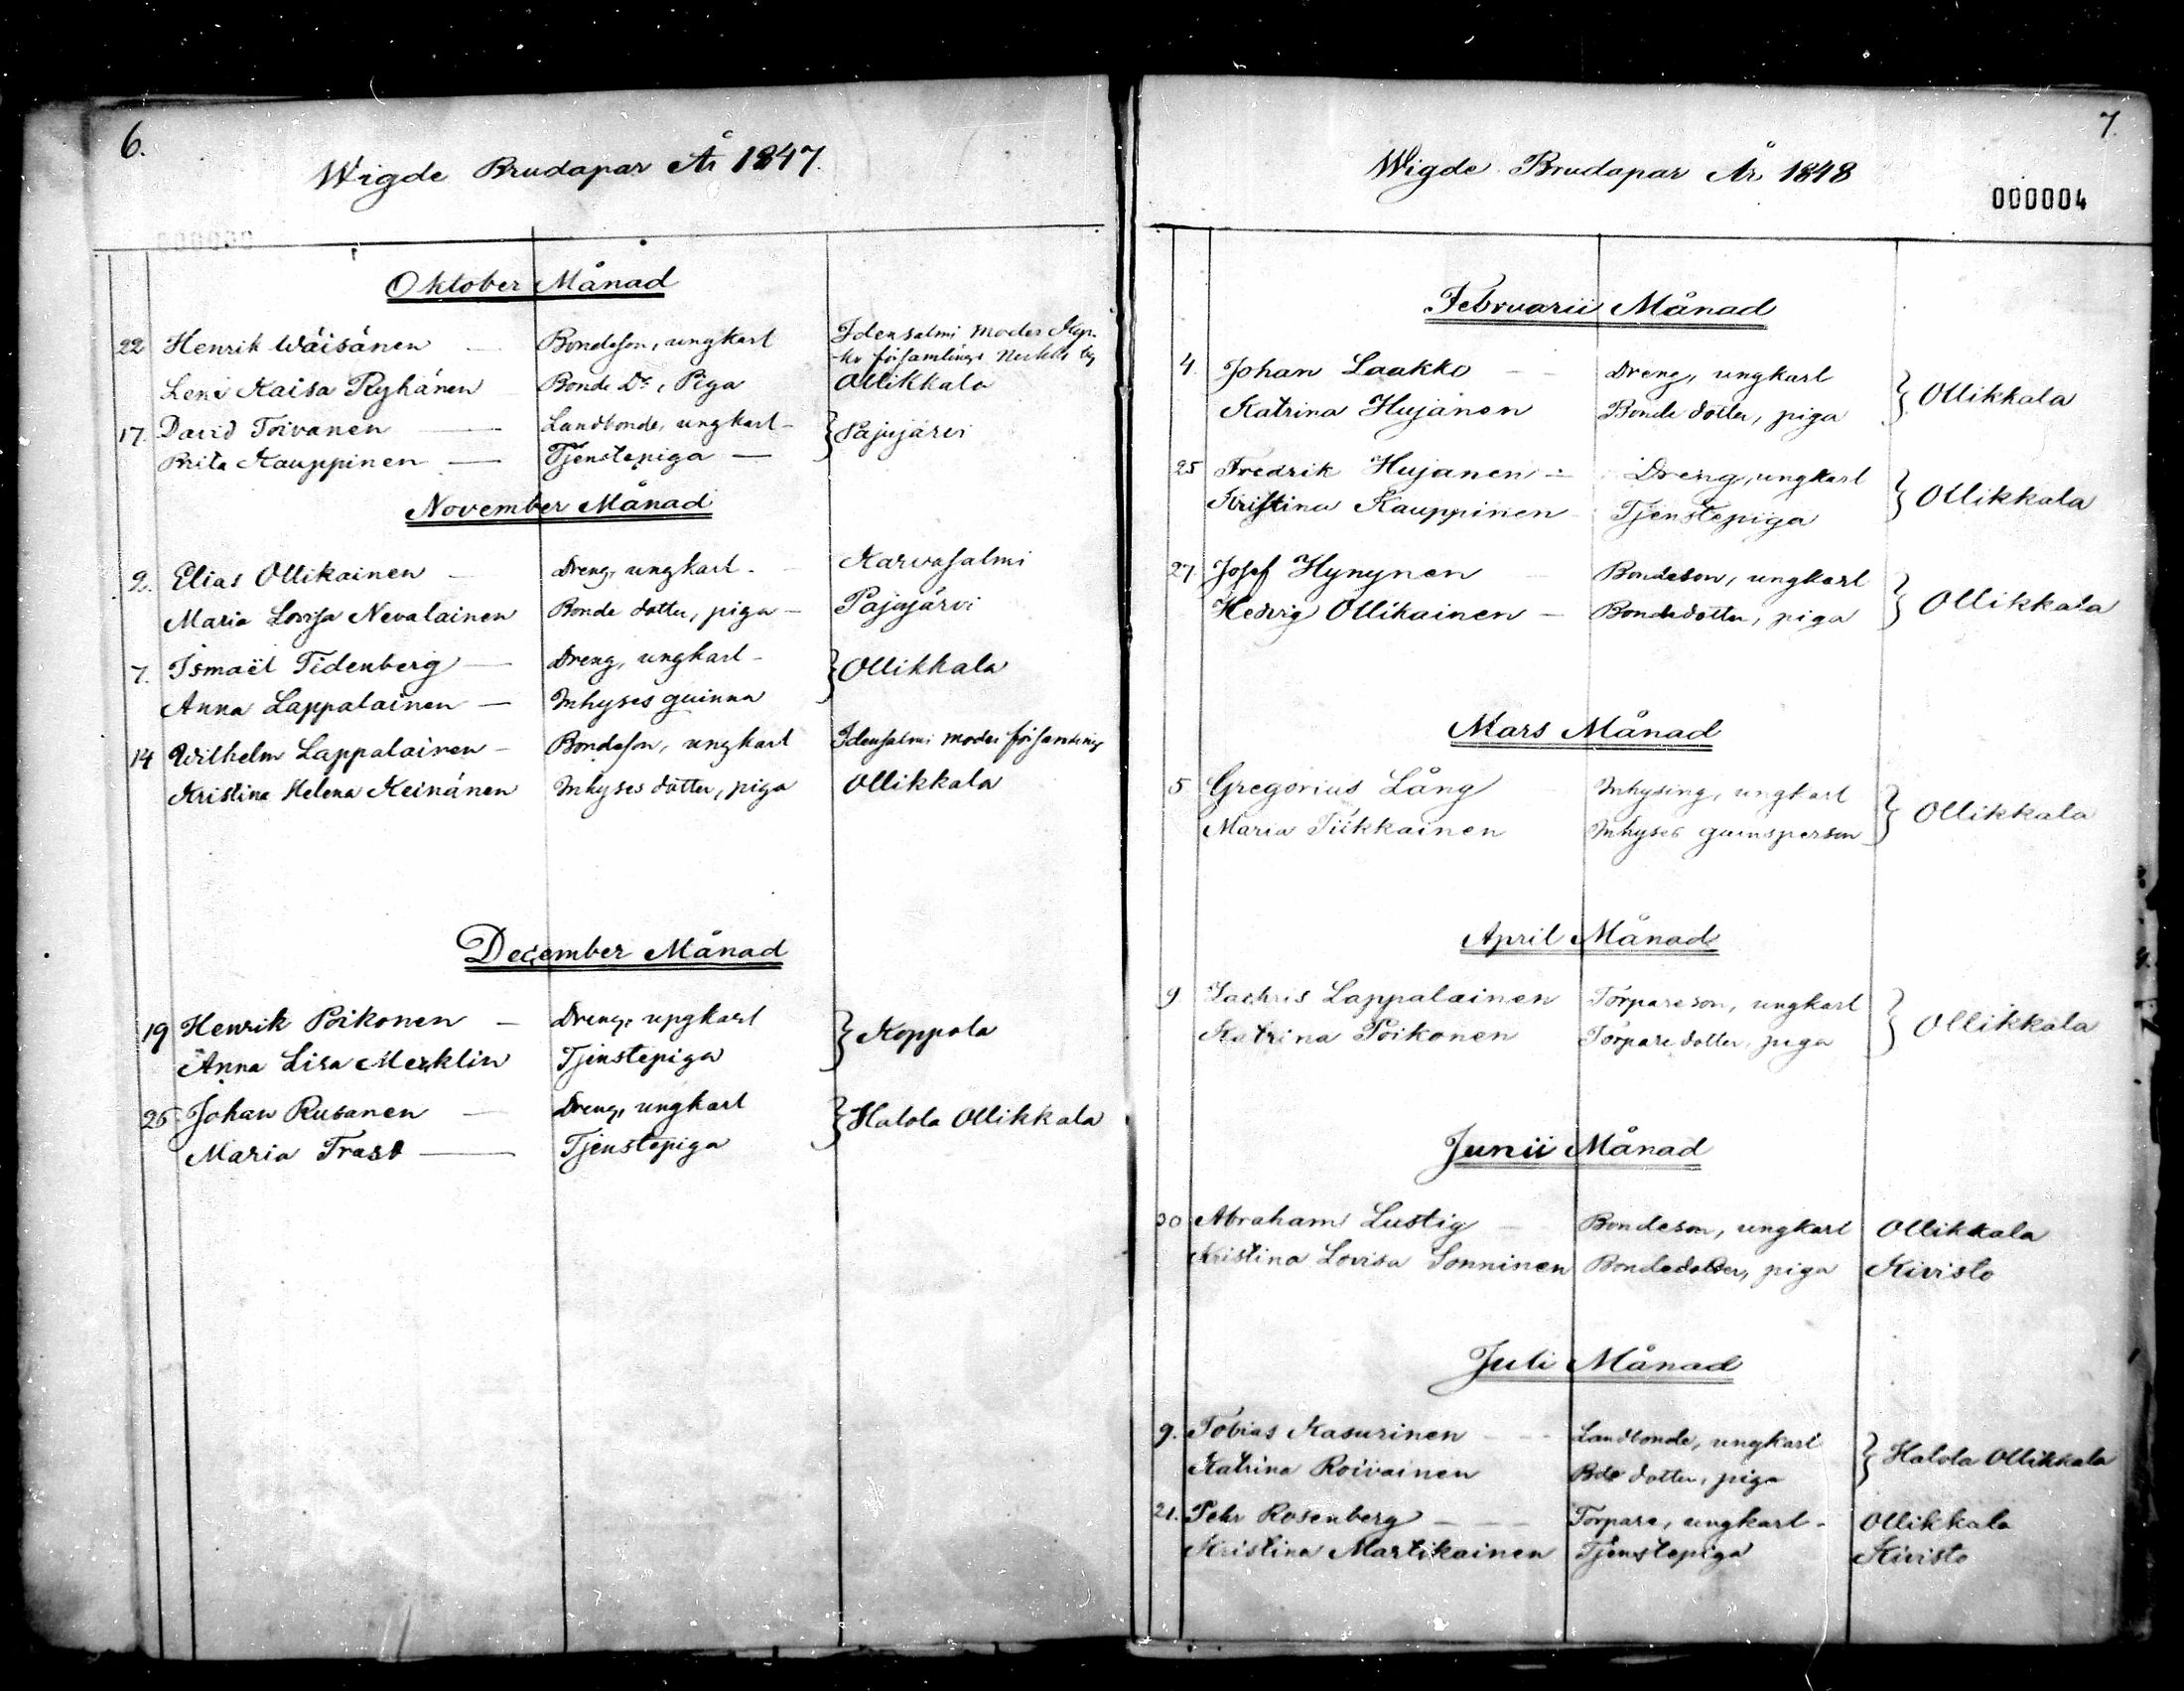 6.
Wigde Brudapar År 1847.
Oktober Månad
22 Henrik Wäisänen — Bondeson, ungkarl Idensalmi moder
församlings
Lena Kaisa Ryhänen Bonde Dr, Piga Ollikkala
17. David Toivanen — Landbonde, ungkarl — } Pajujärvi
Brita Kauppinen — Tjenstepiga —
November Månad
2. Elias Ollikainen — Dreng, ungkarl — Karvasalmi
Maria Lovisa Nevalainen Bonde dotter, piga — Pajujärvi
7. Ismaël Tidenberg — Dreng, ungkarl — } Ollikkala
Anna Lappalainen — Inhyses quinna
14 Wilhelm Lappalainen — Bondeson, ungkarl Idensalmi moder församling
Kristina Helena Keinänen Inhyses dotter, piga Ollikkala
December Månad
19 Henrik Poikonen — Dreng, ungkarl } Koppola
Anna Lisa Merklin Tjenstepiga
26 Johan Rusanen — Dreng, ungkarl } Halola Ollikkala
Maria Trast — Tjenstepiga
7.
Wigde Brudapar År 1848
000004
Februarii Månad
4. Johan Laakko — Dreng, ungkarl } Ollikkala
Katrina Hujanen Bonde dotter, piga
25 Fredrik Hujanen — Dreng, ungkarl } Ollikkala
Kristina Kauppinen Tjenstepiga
27 Josef Hynynen — Bondeson, ungkarl } Ollikkala
Hedvig Ollikainen — Bondedotter, piga
Mars Månad
5 Gregorius Lång Inhysing, ungkarl } Ollikkala
Maria Tiikkainen Inhyses quinsperson
April Månad
9 Zachris Lappalainen Torpareson, ungkarl } Ollikkala
Katrina Poikonen Torpare dotter, piga
Junii Månad
30 Abraham Lustig — Bondeson, ungkarl Ollikkala
Kristina Lovisa Sonninen Bondedotter, piga Kivisto
Juli Månad
9. Tobias Kasurinen — Landbonde, ungkarl } Halola Ollikkala
Katrina Roivainen Bde dotter, piga
21. Pehr Rosenberg — Torpare, ungkarl — Ollikkala
Kristina Martikainen Tjenstepiga Kivisto